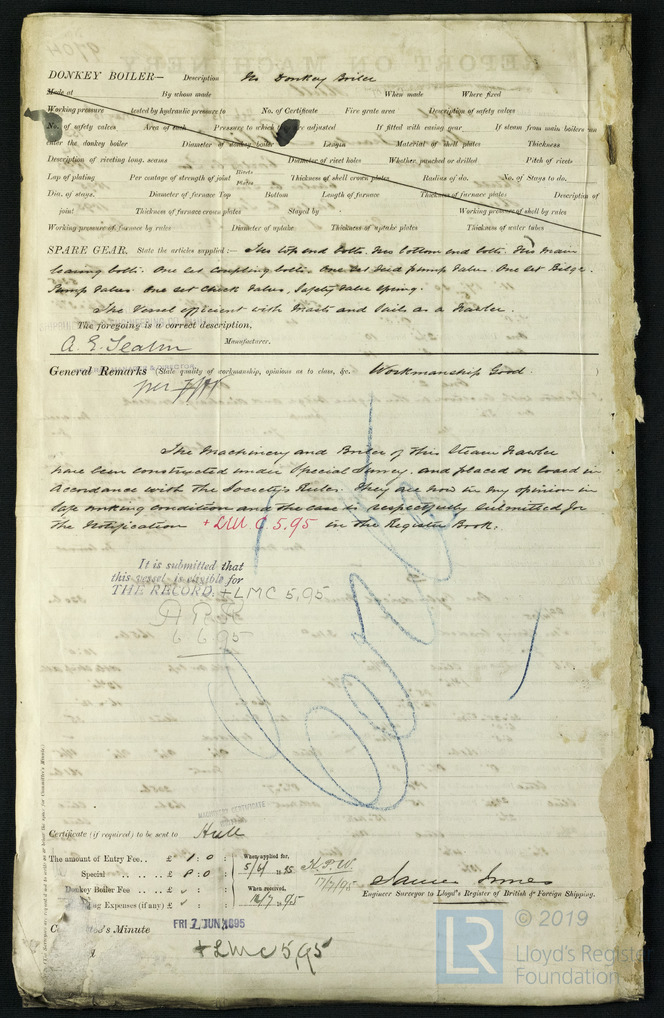 DONKEY BOILER— Description No Donkey Boiler
Made at By whom made When made Where fixed
Working pressure tested by hydraulic pressure to No. of Certificate Fire grate area Description of safety valves
No. of safety valves Area of each Pressure to which adjusted If fitted with easing gear If steam from main boilers can
enter the donkey boiler Diameter of donkey boiler Length Material of shell plates Thickness
Description of riveting long. seams Diameter of rivet holes Whether punched or drilled Pitch of rivets
Lap of plating Per centage of strength of joint Rivets Plates Thickness of shell crown plates Radius of do. No. of Stays to do.
Dia. of stays. Diameter of furnace Top Bottom Length of furnace Thickness of furnace plates Description of
joint Thickness of furnace crown plates Stayed by Working pressure of shell by rules
Working pressure of furnace by rules Diameter of uptake Thickness of uptake plates Thickness of water tubes
SPARE GEAR. State the articles supplied:— Two top end bolts. Two bottom end bolts. Two Main
bearing bolts. One set coupling bolts. One set Feed pump valves. One set Bilge.
Pump Valves. One set Check Valves, Safety Valve Spring.
The Vessel efficient with Masts and Sails as a Trawler.
The foregoing is a correct description,
Manufacturer.
General Remarks (State quality of workmanship, opinions as to class, &c. Workmanship Good. )
The Machinery and Boiler of this Steam Trawler
have been constructed under Special Survey. and placed on board in
accordance with the Society's Rules. They are now in my opinion in
safe working condition and the case is respectfully submitted for
the Notification +LMC. 5.95 in the Register Book.
It is submitted that
this vessel is eligible for
THE RECORD. +LMC 5,95
6.6.95
Certificate (if required) to be sent to Hull
The amount of Entry Fee.. £ 1 : 0 : When applied for,
Special .. .. .. £ 8 : 0 : 5/6/1895
Donkey Boiler Fee .. .. £ : : When received,
ling Expenses (if any) £ : : 16/7/1895
17/7/95
James Innes
Engineer Surveyor to Lloyd's Register of British & Foreign Shipping.
Minute
FRI 7 JUN 1895
+LMC 5,95
LR
© 2019
Lloyd's Register
Foundation